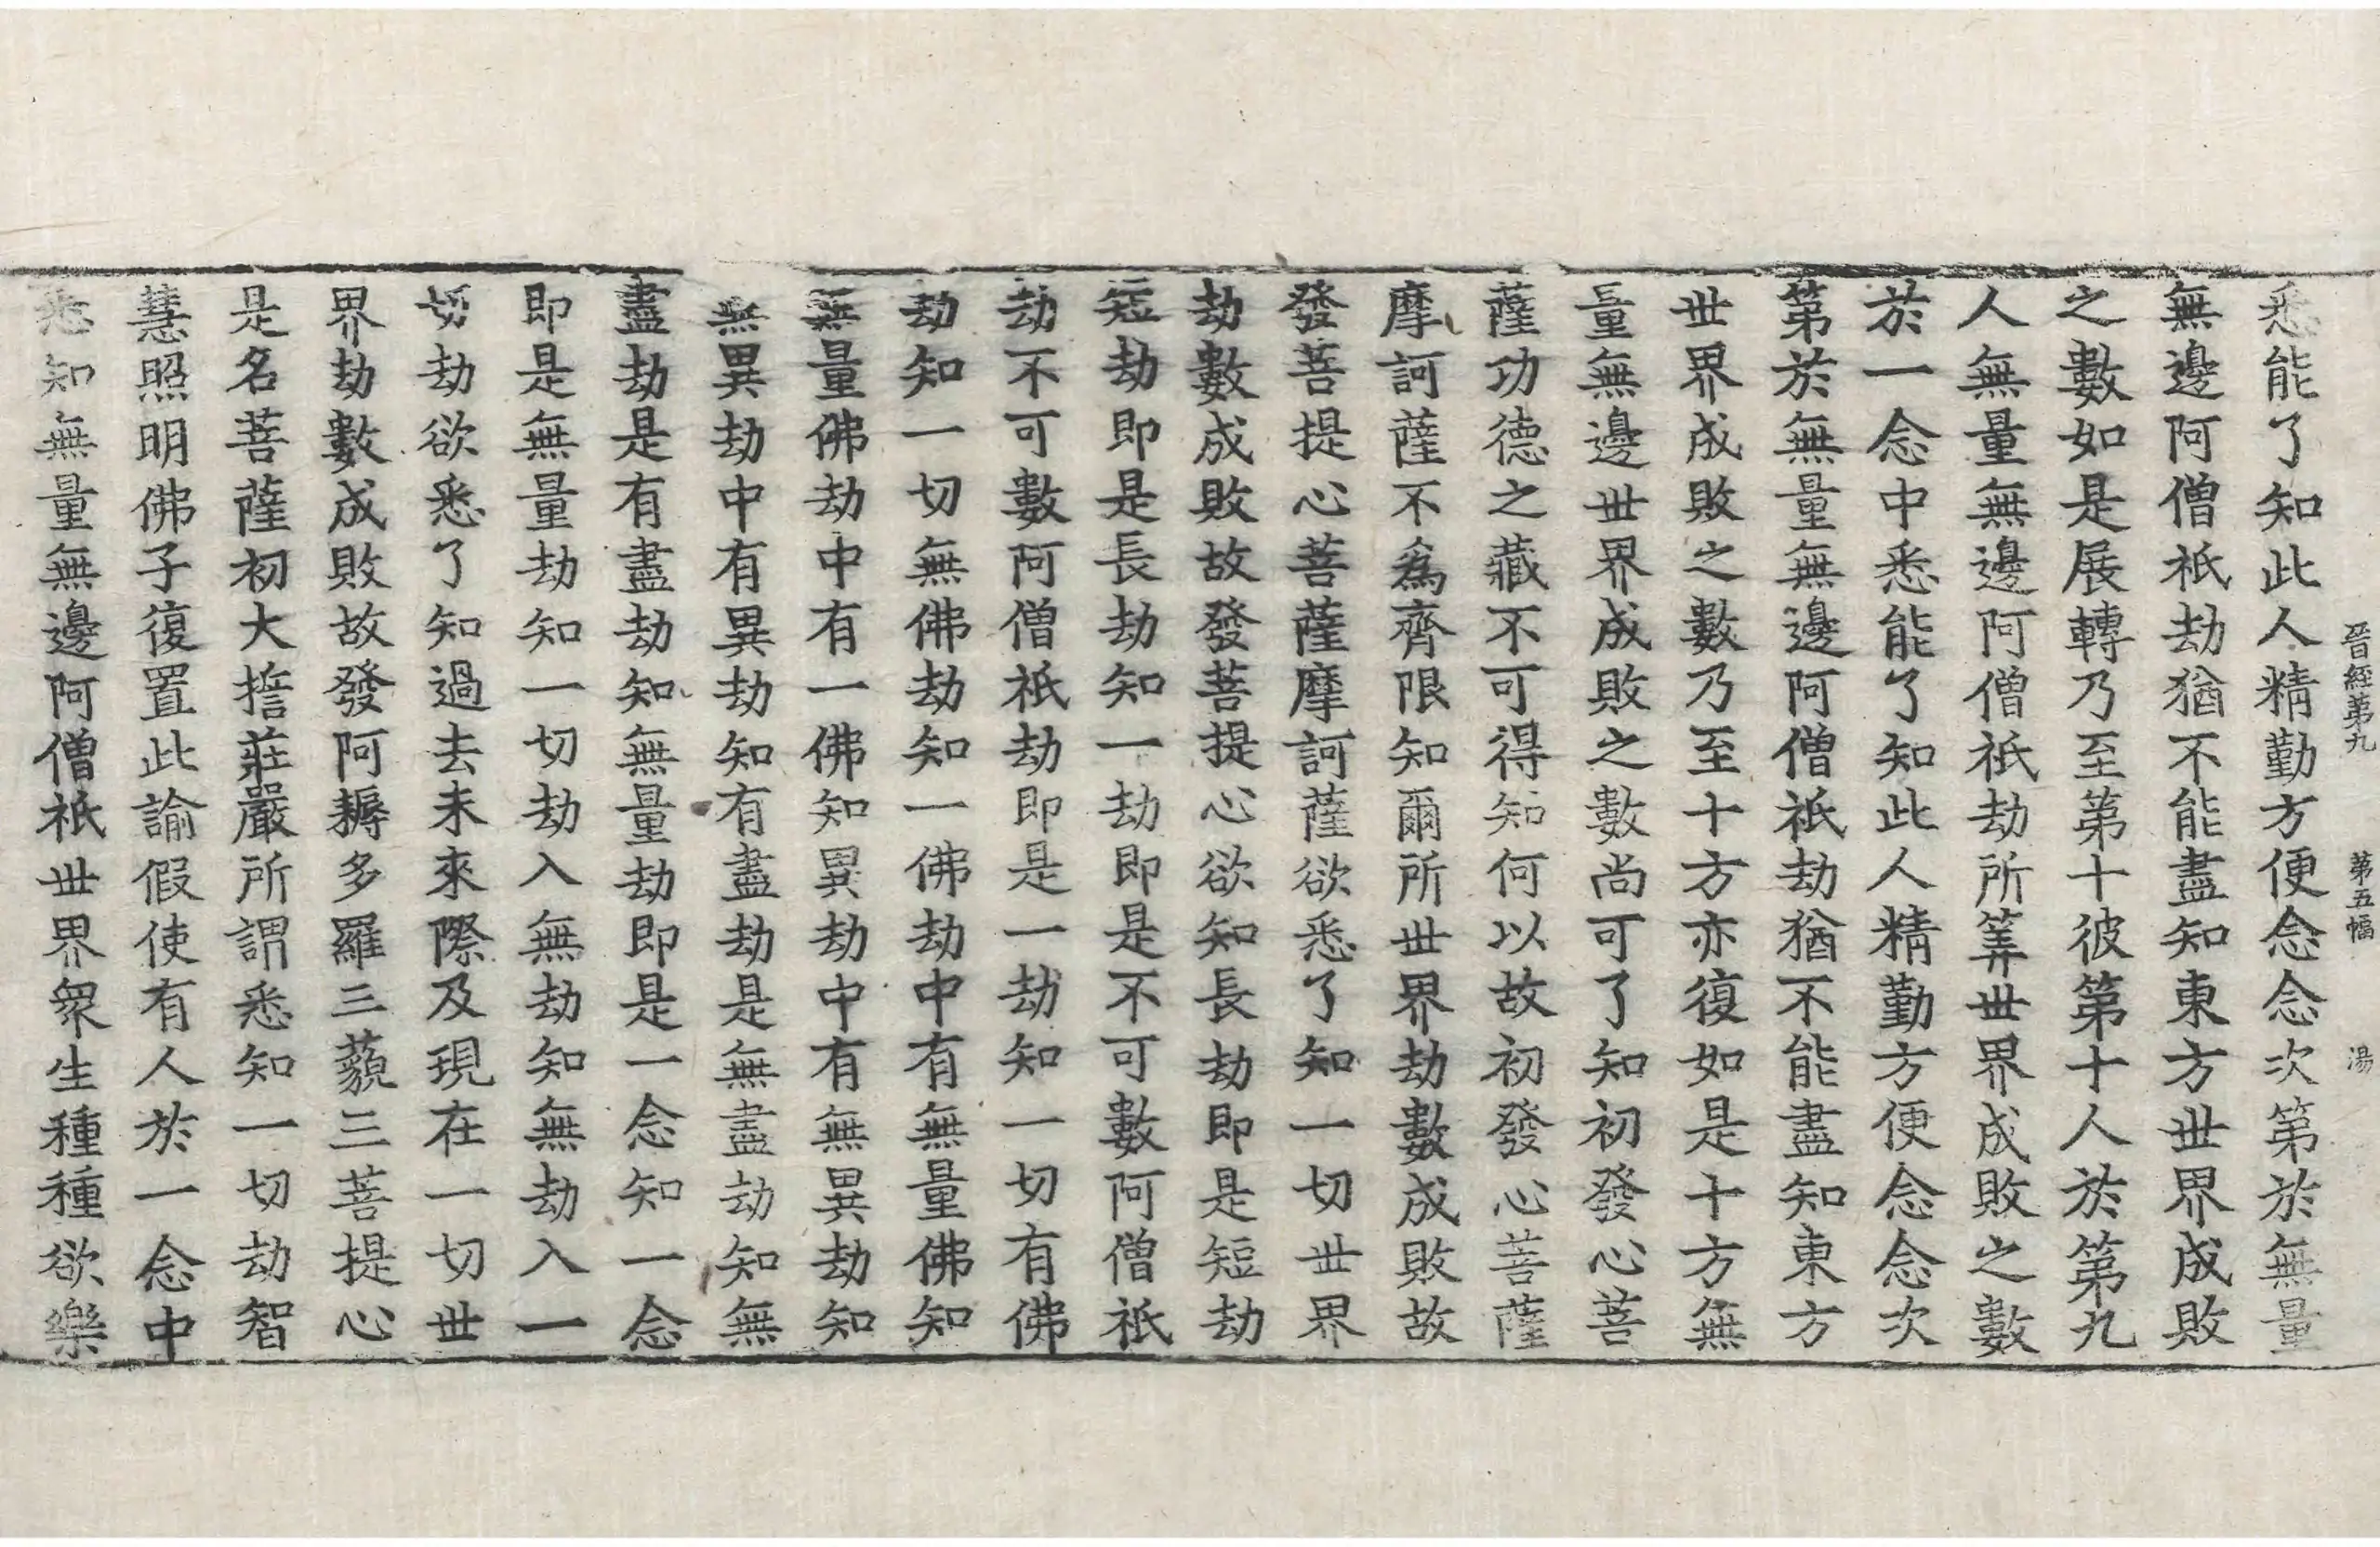 晉經第九　第五幅　湯
悉能了知此人精勤方便念念次第於無量
無邊阿僧祇劫猶不能盡知東方世界成敗
之數如是展轉乃至第十彼第十人於第九
人無量無邊阿僧祇劫所筭世界成敗之數
於一念中悉能了知此人精勤方便念念次
第於無量無邊阿僧祇劫猶不能盡知東方
世界成敗之數乃至十方亦復如是十方無
量無邊世界成敗之數尚可了知初發心菩
薩功德之藏不可得知何以故初發心菩薩
摩訶薩不為齊限知爾所世界劫數成敗故
發菩提心菩薩摩訶薩欲悉了知一切世界
劫數成敗故發菩提心欲知長劫即是短劫
短劫即是長劫知一劫即是不可數阿僧祇
劫不可數阿僧祇劫即是一劫知一切有佛
劫知一切無佛劫知一佛劫中有無量佛知
無量佛劫中有一佛知異劫中有無異劫知
無異劫中有異劫知有盡劫是無盡劫知無
盡劫是有盡劫知無量劫即是一念知一念
即是無量劫知一切劫入無劫知無劫入一
切劫欲悉了知過去未來際及現在一切世
界劫數成敗故發阿耨多羅三藐三菩提心
是名菩薩初大擔莊嚴所謂悉知一切劫智
慧照明佛子復置此諭假使有人於一念中
悉知無量無邊阿僧祇世界衆生種種欲樂